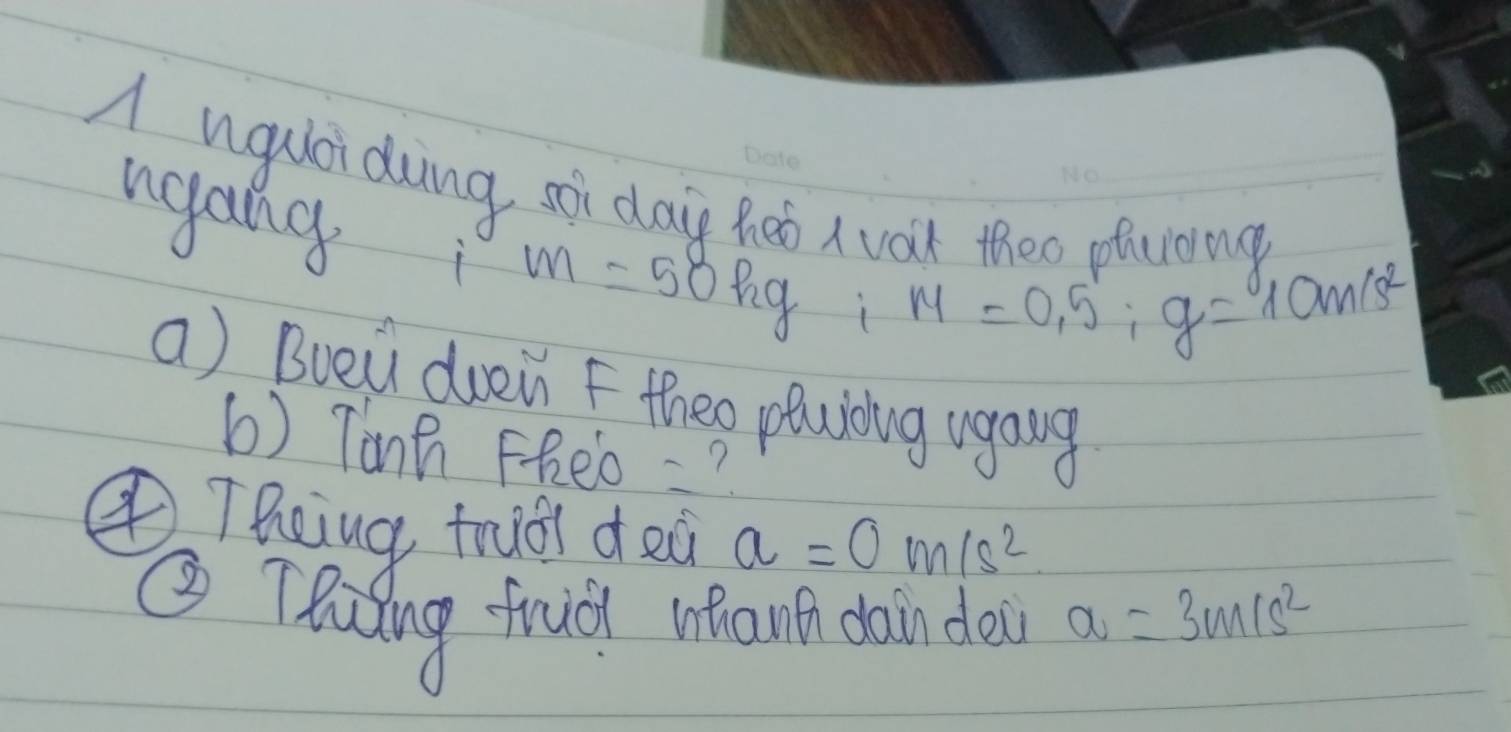 Date
No
1 người dùng sợi dây kéo 1 vật theo phương
ngang ; m = 50kg ; μ = 0,5 ; g = 10m/s²
a) Biểu diễn F theo phương ngang.
b) Tính Fkéo = ?
① Thùng trượt đều a = 0 m/s².
② Thùng trượt nhanh dần đều a = 3m/s²